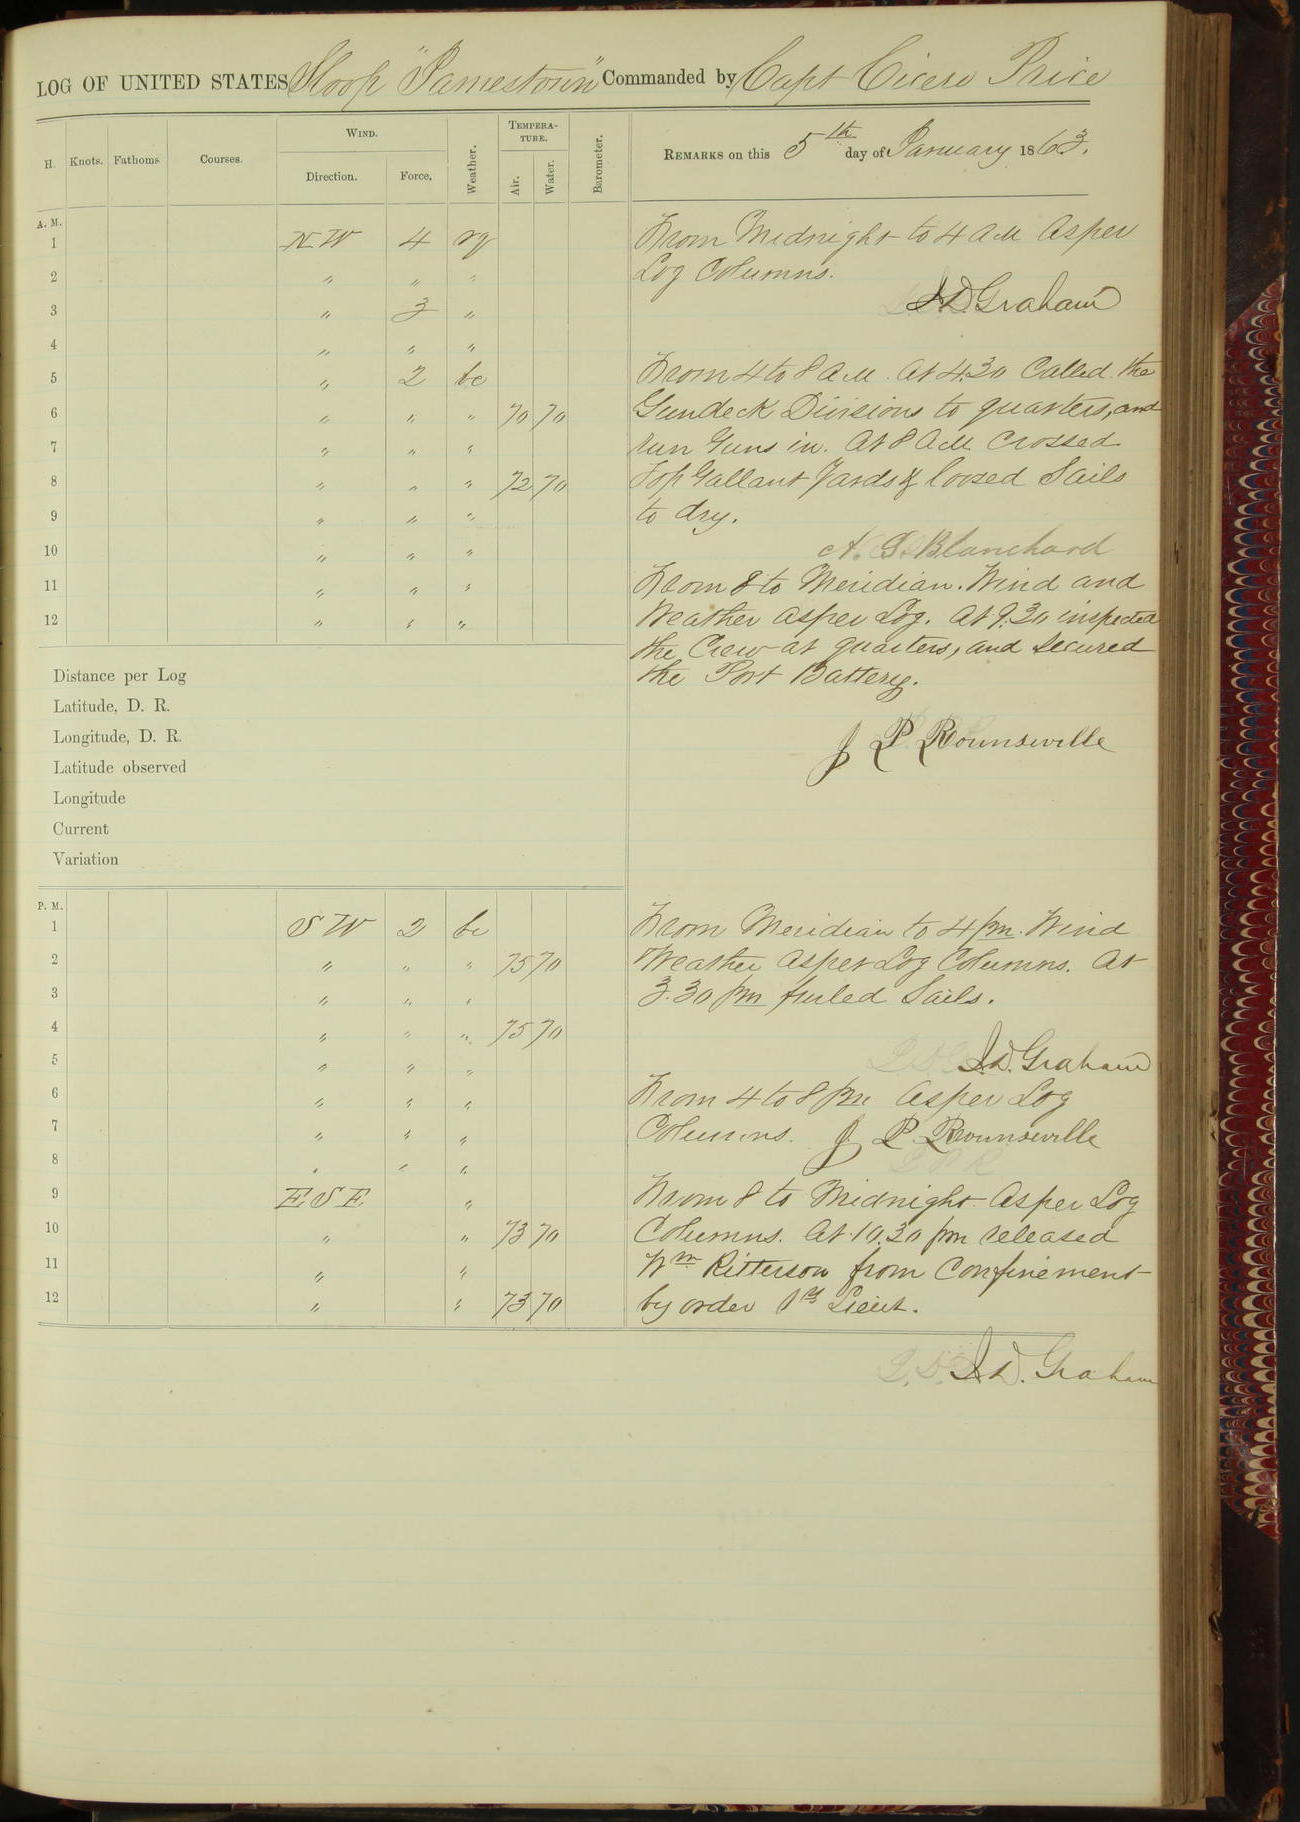 LOG OF UNITED STATES Sloop "Jamestown" Commanded by Capt Cicero Price
H. Knots. Fathoms. Courses. WIND. Direction. Force. Weather. TEMPERATURE. Air. Water. Barometer. REMARKS on this 5th day of January 1863.
A. M.
1 NW 4 rq From Midnight to 4 AM Asper
2 " " " Log Columns.
3 " 3 " J.D. Graham
4 " " "
5 " 2 bc From 4 to 8 AM. At 4.30 Called the
6 " " " 70 70 Gundeck Divisions to quarters, and
7 " " " run Guns in. At 8 AM Crossed
8 " " " 72 70 Top Gallant Yards & loosed Sails
9 " " " to dry.
10 " " " A. G. Blanchard
11 " " " From 8 to Meridian. Wind and
12 " " " Weather Asper Log. At 9.30 inspected
the Crew at quarters, and secured
the Port Battery.
Distance per Log
Latitude, D. R.
Longitude, D. R.
J P Rounseville
Latitude observed
Longitude
Current
Variation
P. M.
1 SW 2 bc From Meridian to 4 pm. Wind
2 " " " 75 70 Weather Asper Log Columns. At
3 " " " 3.30 pm furled Sails.
4 " " " 75 70
5 " " " J.D. Graham
6 " " " From 4 to 8 pm Asper Log
7 " " " Columns. J P Rounseville
8 " " "
9 ESE " From 8 to Midnight Asper Log
10 " " 73 70 Columns. At 10.30 pm released
11 " " Wm Ritterson from Confinement
12 " " 73 70 by order 1st Lieut.
J.D. Graham